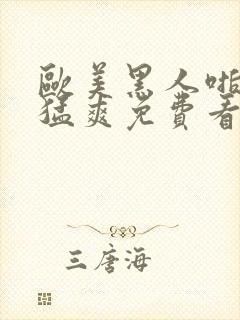 歐美黑人啪
猛爽免費看
三唐海